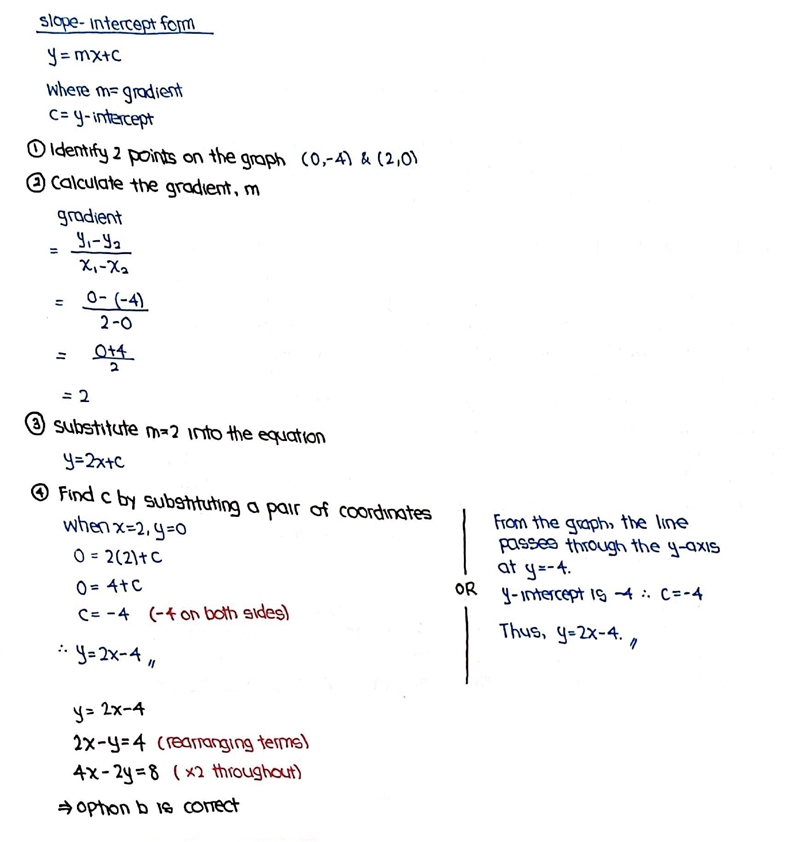 slope-intercept form
y = mx+c
where m= gradient
c= y-intercept
① Identify 2 points on the graph (0,-4) & (2,0)
② Calculate the gradient, m
gradient
= y₁-y₂
x₁-x₂
= 0-(-4)
2-0
= 0+4
2
= 2
③ substitute m=2 into the equation
y=2x+c
④ Find c by substituting a pair of coordinates
when x=2, y=0
0 = 2(2)+c
0= 4+c
c= -4 (-4 on both sides)
∴ y=2x-4 〃
OR
From the graph, the line
passes through the y-axis
at y=-4.
y-intercept is -4 ∴ c=-4
Thus, y=2x-4. 〃
y= 2x-4
2x-y=4 (rearranging terms)
4x-2y=8 (×2 throughout)
⇒ option b is correct